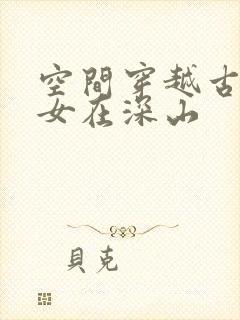 空間穿越古
女在深山
貝克